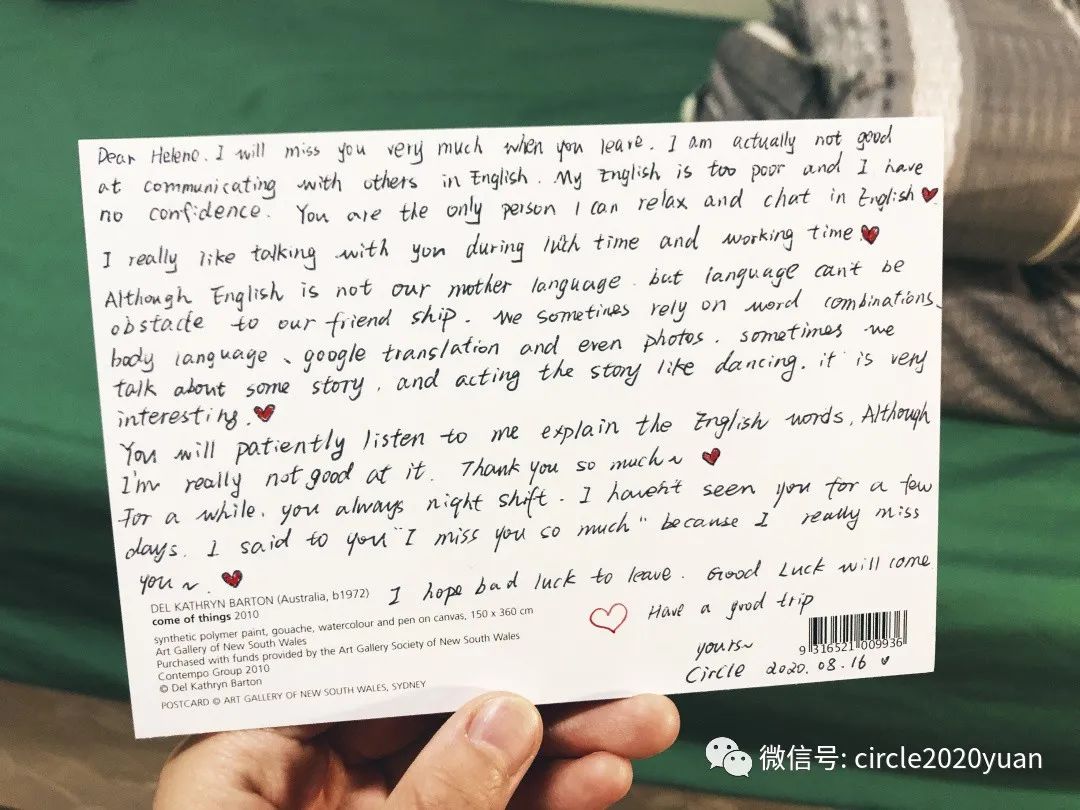 Dear Helena. I will miss you very much when you leave. I am actually not good
at communicating with others in English. My English is too poor and I have
no confidence. You are the only person I can relax and chat in English
I really like talking with you during time and working time
Although English is not our mother language. but language can't be
obstacle to our friend ship. We sometimes rely on word combinations、
body language、google translation and even photos. sometimes we
talk about some story. and acting the story like dancing. it is very
interesting.
You will patiently listen to me explain the English words. Although
I'm really not good at it. Thank you so much~
For a while. you always night shift. I haven't seen you for a few
days. I said to you "I miss you so much" because I really miss
you~
I hope bad luck to leave. Good Luck will come
Have a good trip
yours~
Circle 2020.08.16
DEL KATHRYN BARTON (Australia, b1972)
come of things 2010
synthetic polymer paint, gouache, watercolour and pen on canvas, 150 x 360 cm
Art Gallery of New South Wales
Purchased with funds provided by the Art Gallery Society of New South Wales
Contempo Group 2010
© Del Kathryn Barton
POSTCARD © ART GALLERY OF NEW SOUTH WALES, SYDNEY
9 316521 009936
微信号: circle2020yuan